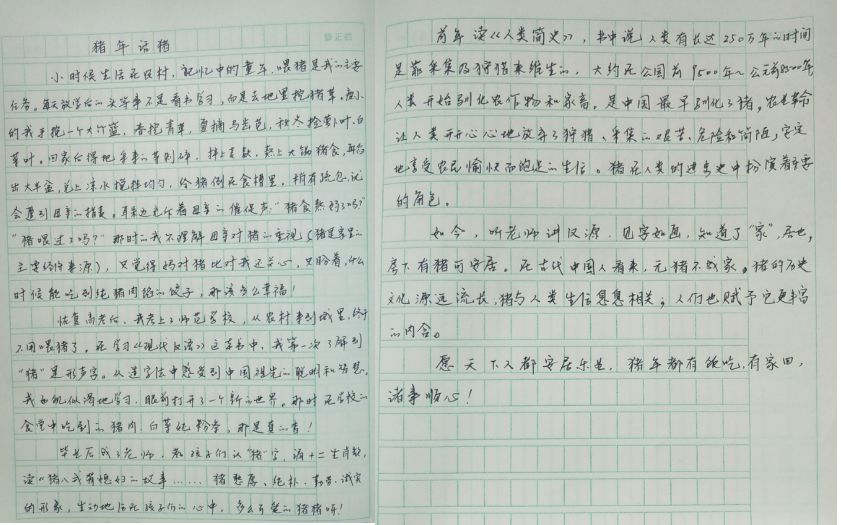 猪年话猪
小时候生活在农村，记忆中的童年，喂猪是我的主要
任务。每天放学后的头等事不是看书学习，而是去地里挖猪草，瘦小
的我手挽一个大竹篮，春挖青草，夏捕马齿苋，秋冬捡萝卜叶、白
菜叶。回家后得把采来的菜剁碎，拌上麦麸，熬上大锅猪食，再舀
出大半盆，兑上凉水搅拌均匀，给猪倒在食槽里，稍有疏忽，就
会遭到母亲的指责。耳边总充斥着母亲的催促声："猪食熬好了吗？"
"猪喂过了吗？"那时的我不理解母亲对猪的重视（猪是家里的
主要经济来源），只觉得妈对猪比对我还关心，只盼着，什么
时候能吃到纯猪肉馅的饺子，那该多么幸福！
恢复高考后，我考上了师范学校，从农村来到城里，终于
不用喂猪了。在学习《现代汉语》这本书中，我第一次了解到
"猪"是形声字。从造字法中感受到中国祖先的聪明和智慧。
我如饥似渴地学习，眼前打开了一个新的世界。那时在学校的
食堂中吃到的猪肉、白菜炖粉条，那是真的香！
毕业后成了老师，教孩子们认"猪"字，讲十二生肖歌，
读《猪八戒背媳妇的故事……猪憨厚、纯朴、勤劳、诚实
的形象，生动地活在孩子们的心中，多么可爱的猪猪呀！
前年读《人类简史》，书中说人类有长达250万年的时间
是靠采集及狩猎来维生的，大约在公园前9500年～公元前8500年
人类开始驯化农作物和家畜。是中国最早驯化了猪，农业革命
让人类开开心心地放弃了狩猎、采集的艰苦、危险和简陋，安定
地享受农民愉快而饱足的生活。猪在人类的进步史中扮演着主要
的角色。
如今，听老师讲汉源，见字如画，知道了"家"，居也，
房下有猪可安居。在古代中国人看来，无猪不成家。猪的历史
文化源远流长，猪与人类生活息息相关；人们也赋予它更丰富
的内含。
愿天下人都安居乐业，猪年都有饭吃，有家回，
诸事顺心！